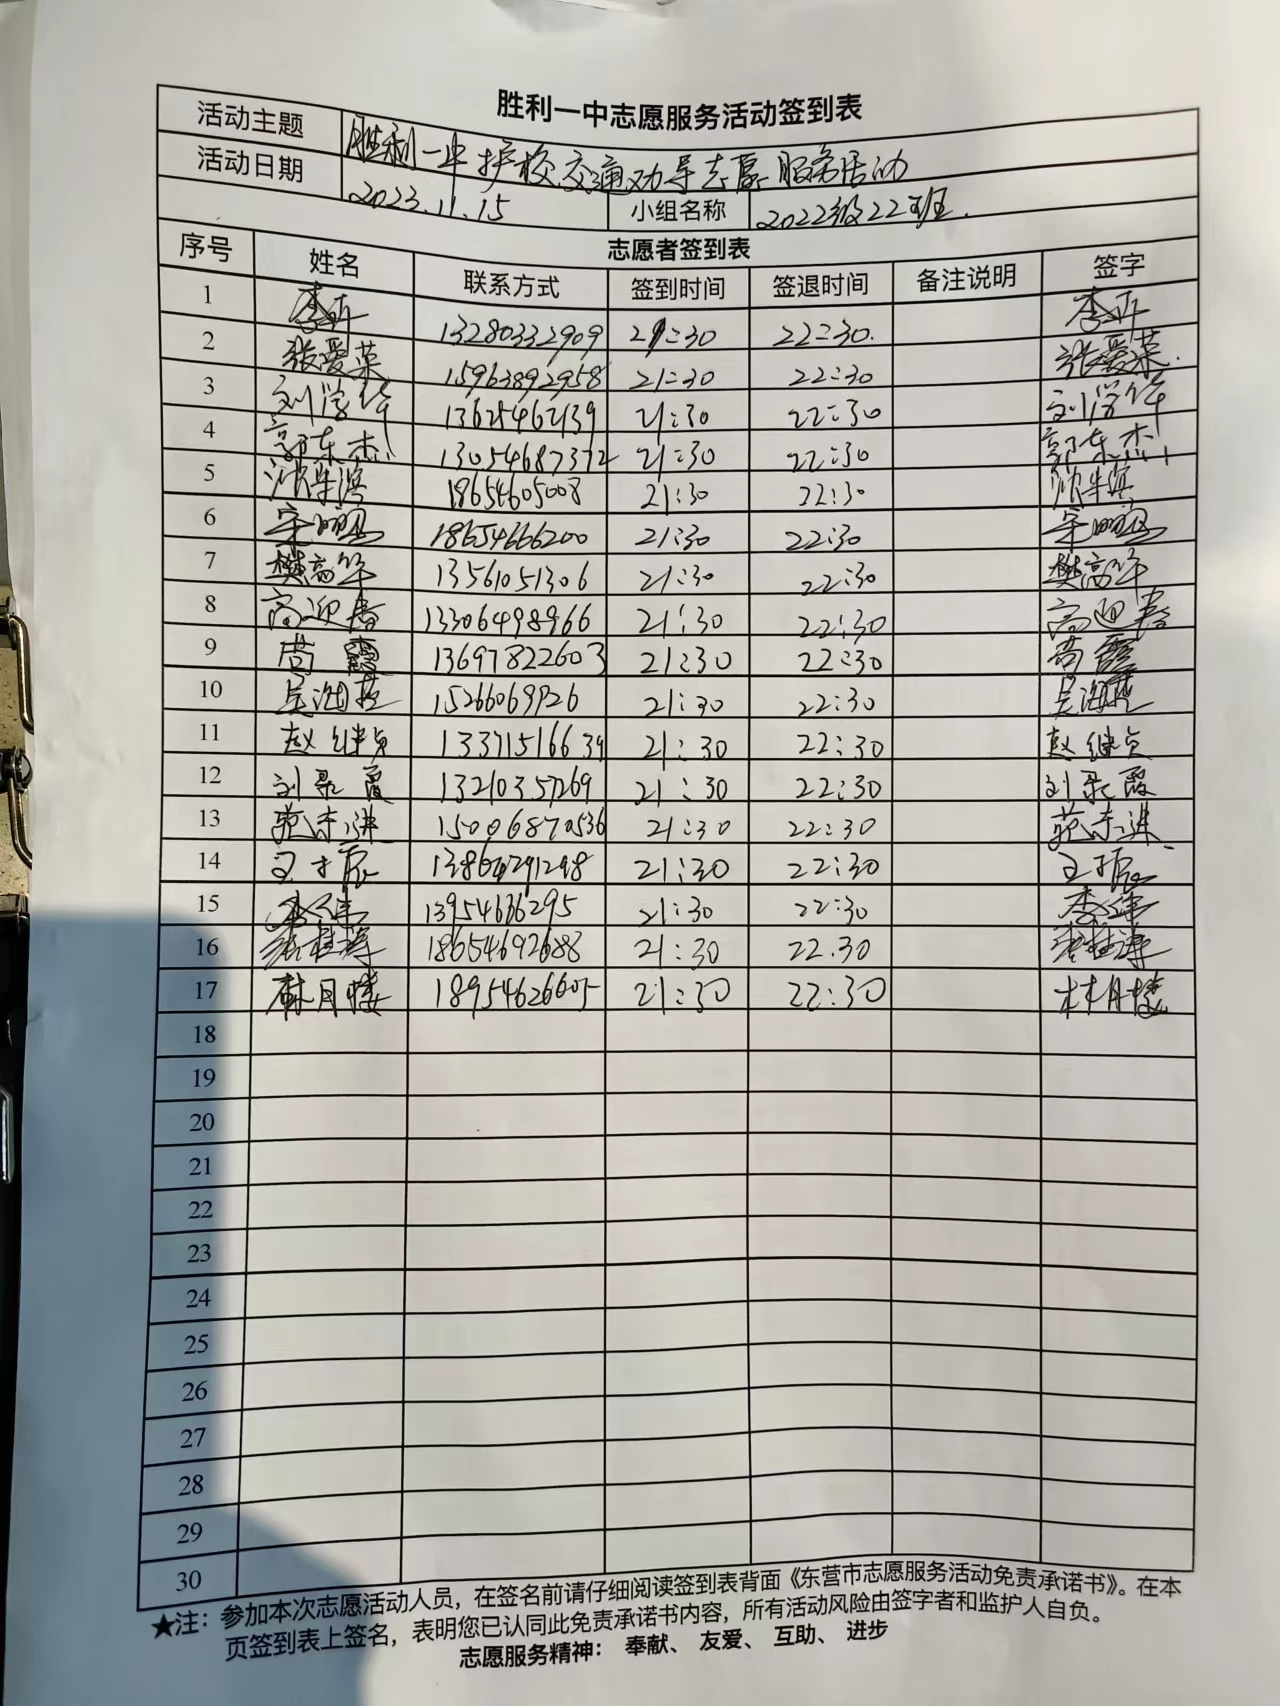 胜利一中志愿服务活动签到表
活动主题 胜利一中护校交通劝导志愿服务活动
活动日期 2023.11.15 小组名称 2022级22班.
志愿者签到表
序号 姓名 联系方式 签到时间 签退时间 备注说明 签字
1 李 13280332909 21:30 22:30. 李
2 张爱荣 15963892958 21:30 22:30 张爱荣.
3 刘学华 13625462139 21:30 22:30 刘学华
4 郭东杰 13054687372 21:30 22:30 郭东杰
5 18654605008 21:30 22:30
6 宋 18654666200 21:30 22:30 宋
7 樊高华 13561051306 21:30 22:30 樊高华
8 高迎春 13306498966 21:30 22:30 高迎春
9 尚霞 13697822603 21:30 22:30 尚霞
10 吴海燕 15266069926 21:30 22:30 吴海燕
11 赵继贞 13371516639 21:30 22:30 赵继贞
12 刘景霞 13210357269 21:30 22:30 刘景霞
13 苑东进 15006870536 21:30 22:30 苑东进
14 王于辰 21:30 22:30 王于辰
15 李 13954636295 21:30 22:30 李
16 18654692688 21:30 22:30
17 林月楼 18954626605 21:30 22:30 林月楼
18
19
20
21
22
23
24
25
26
27
28
29
30
★注：参加本次志愿活动人员，在签名前请仔细阅读签到表背面《东营市志愿服务活动免责承诺书》。在本
页签到表上签名，表明您已认同此免责承诺书内容，所有活动风险由签字者和监护人自负。
志愿服务精神： 奉献、 友爱、 互助、 进步